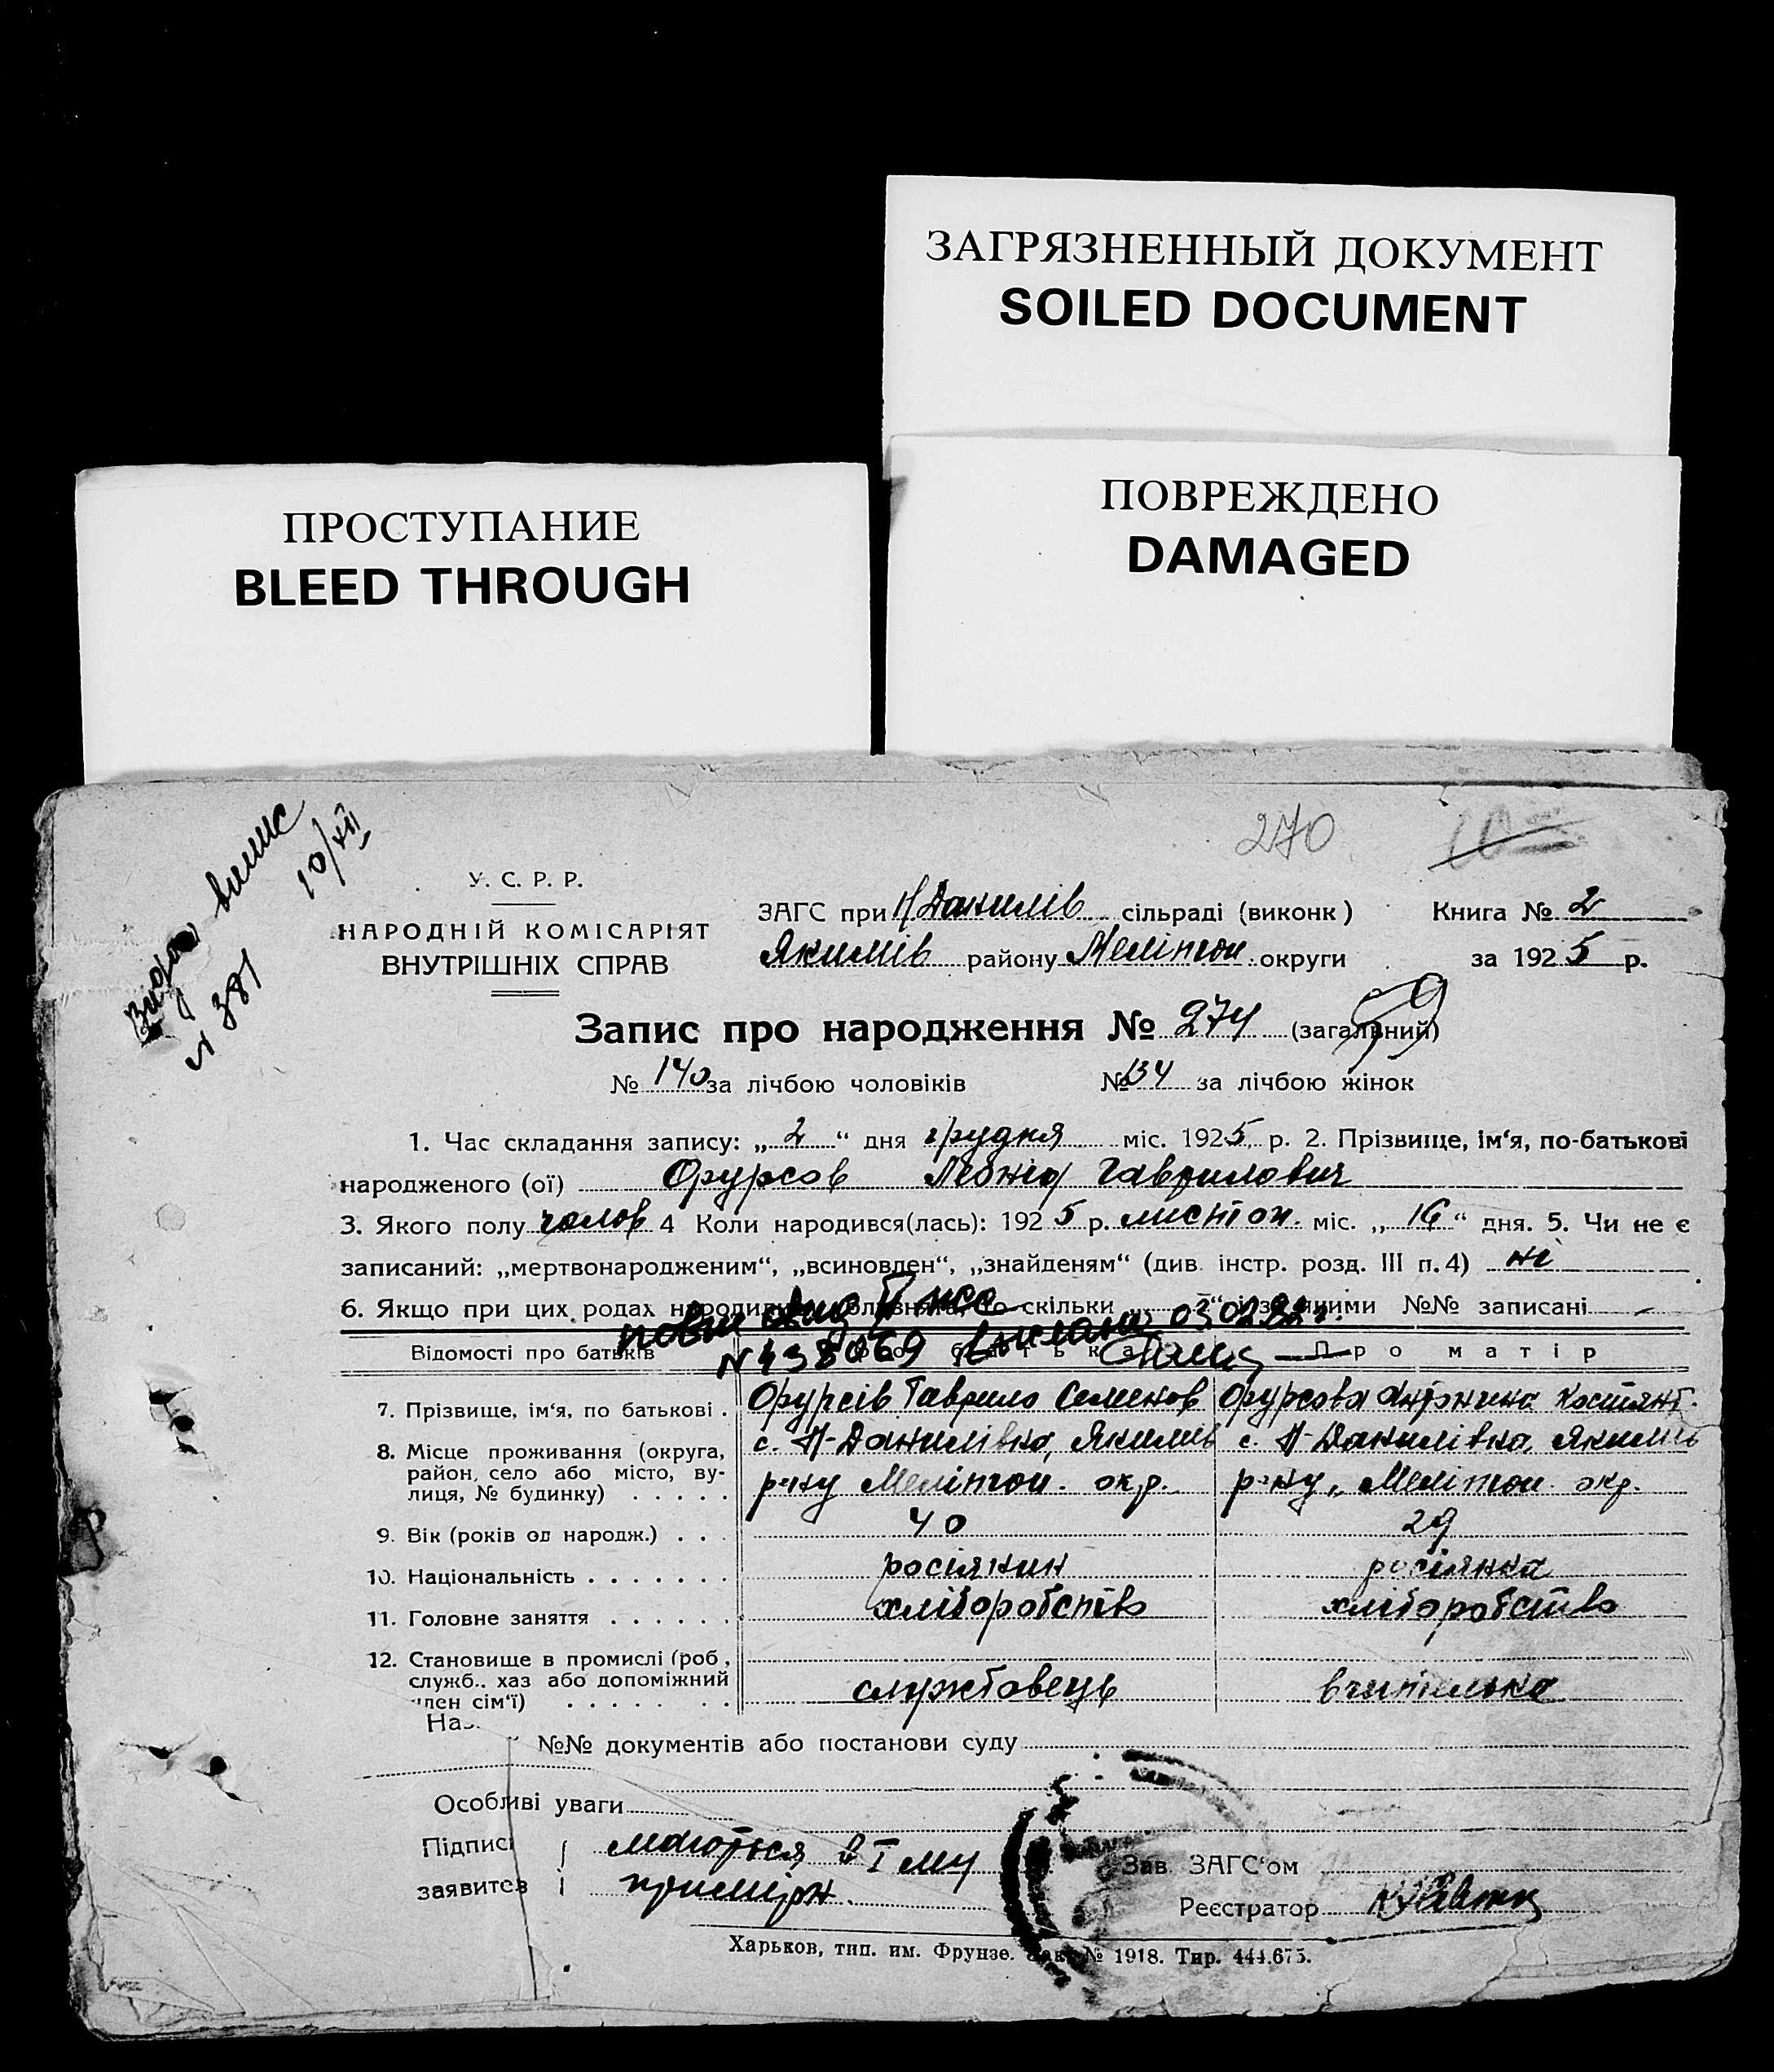 ЗАГРЯЗНЕННЫЙ ДОКУМЕНТ
SOILED DOCUMENT
ПРОСТУПАНИЕ
BLEED THROUGH
ПОВРЕЖДЕНО
DAMAGED
270
10
видан випис
10/XII
№ 381
У. С. Р. Р.
НАРОДНІЙ КОМІСАРІЯТ
ВНУТРІШНІХ СПРАВ
ЗАГС при Н/Данилів сільраді (виконк)
Книга № 2
Якимів району Меліпюл. округи
за 1925 р.
Запис про народження № 274 (загальний)
№ 140 за лічбою чоловіків № 134 за лічбою жінок
1. Час складання запису: „2“ дня грудня міс. 1925 р. 2. Прізвище, ім‘я, по-батькові
народженого (ої) Фурсов Леонід Гаврилович
3. Якого полу чолов 4 Коли народився(лась): 1925 р. листоп. міс. „16“ дня. 5. Чи не є
записаний: „мертвонародженим“, „всиновлен“, „знайденям“ (див. інстр. розд. III п.4) ні
6. Якщо при цих родах скільки якими №№ записані —
N 438069
Відомості про батьків
Про матір
7. Прізвище, ім‘я, по батькові . Фурсів Гаврило Семенов Фурсова Антонина Костянт.
8. Місце проживання (округа, район, село або місто, вулиця, № будинку) . . . . . с. Н-Данилівка, Якимів с. Н-Данилівка, Якимів
р-ну Меліпюл. окр. р-ну, Меліпюл. окр.
9. Вік (років од народж.) . . . 40 29
10. Національність . . . . . . . росіянин росіянка
11. Головне заняття . . . . . . хліборобство хліборобство
12. Становище в промислі (роб, служб.. хаз або допоміжний член сім‘ї) . . . . . . . службовець вчителька
№№ документів або постанови суду
Особливі уваги
Підписі маються в I му
заявитєв примірн.
Зав. ЗАГС‘ом
Реєстратор
Харьков, тип. им. Фрунзе. Зак. № 1918. Тир. 444.675.